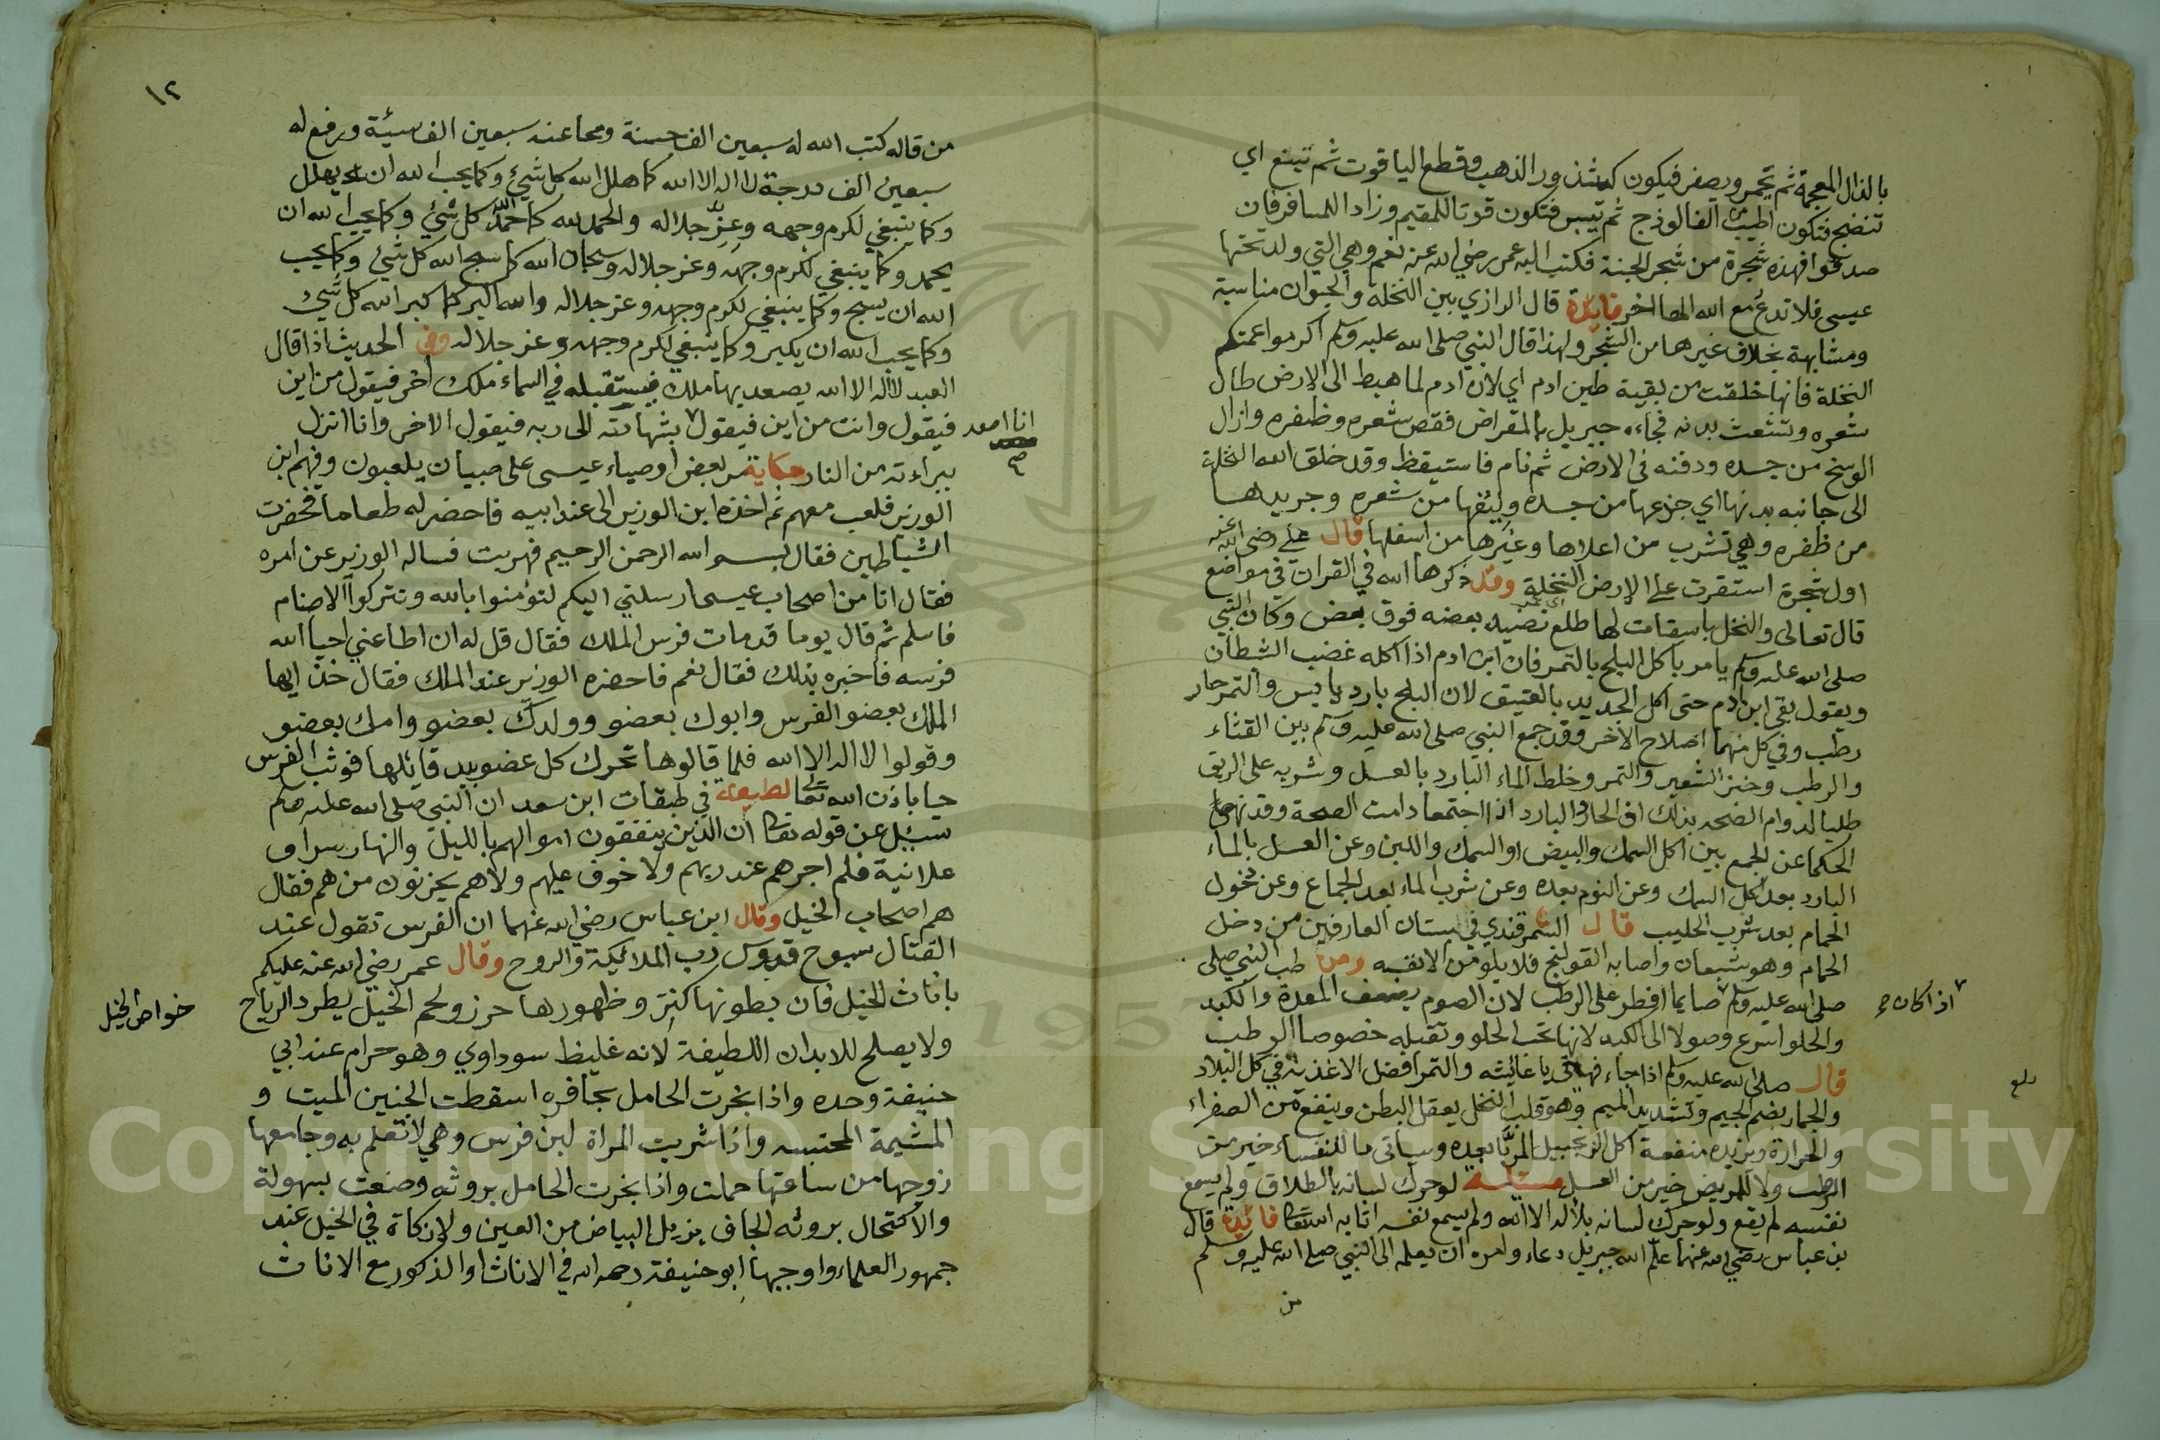 بالذال المعجمة ثم تحمر ويصفر فيكون كشذور الذهب وقطع الياقوت ثم تينع اي
تنضج فتكون اطيب من الفالوذج ثم تيبس فتكون قوتا للمقيم وزادا للمسافر فان
صدقوا فهذه شجرة من شجر الجنة فكتب اليه عمر رضي الله عنه نعم وهي التي ولد تحتها
عيسى فلا تدع مع الله الها اخر فايدة قال الرازي بين النخلة والحيوان مناسبة
ومشابهة بخلاف غيرها من الشجر ولهذا قال النبي صلى الله عليه وسلم اكرموا عمتكم
النخلة فانها خلقت من بقية طين ادم اي لان ادم لما هبط الى الارض طال
شعره وتشعث بدنه فجاءه جبريل بالمقراض فقص شعره وظفره وازال
الوسخ من جسده ودفنه في الارض ثم نام فاستيقظ وقد خلق الله النخلة
الى جانبه بدنها اي جزعها من جسده وليفها من شعره وجريدها
من ظفره وهي تشرب من اعلاها وغيرها من اسفلها قال علي رضي الله عنه
اول شجرة استقرت على الارض النخلة وقد ذكرها الله في القران في مواضع
قال تعالى والنخل باسقات لها طلع نضيد بعضه فوق بعض وكان النبي
صلى الله عليه وسلم يامر باكل البلح بالتمر فان ابن ادم اذا اكله غضب الشطان
ويقول بقي ابن ادم حتى اكل الجديد بالعتيق لان البلح بارد يابس والتمر حار
رطب وفي كل منهما اصلاح الاخر وقد جمع النبي صلى الله عليه وسلم بين القثاء
والرطب وخبز الشعير والتمر وخلط الماء البارد بالعسل وشربه على الريق
طلبا لدوام الصحه بذلك اذ الحار والبارد اذا اجتمعا دامت الصحة وقد نهى
الحكما عن الجمع بين اكل السمك والبيض او السمك واللبن وعن العسل بالماء
البارد بعد اكل السمك وعن النوم بعده وعن شرب الماء بعد الجماع وعن دخول
الحمام بعد شرب الحليب قال السمرقندي في بستان العارفين من دخل
الحمام وهو شبعان واصابه القولنج فلا يلومن الا نفسه ومن طب النبي صلى
صلى الله عليه وسلم صايما افطر على الرطب لان الصوم يضعف المعدة والكبد
اذا كان صح
والحلو اسرع وصولا الى الكبد لانها تحب الحلو وتقبله خصوصا الرطب
قال صلى الله عليه وسلم اذا جاء يا عائشه والتمر افضل الاغذية في كل البلاد
والجمار بضم الجيم وتشديد الميم وهو قلب النخل يعقل البطن وينفع من الصفراء
والحرارة ويزيده منفعة اكل الزنجبيل المربا بعده وسياتى ما للنفساء خير من
الرطب ولا للمريض خير من العسل مسئلة لو حرك لسانه بالطلاق ولم يسمع
نفسه لم يقع ولو حرك لسانه بلا اله الا الله ولم يسمع نفسه اثابه الله تعالى فائدة قال
بن عباس رضي الله عنهما علم الله جبريل دعاء وامره ان يعلمه الى النبي صلى الله عليه وسلم
من
١٢
من قاله كتب الله له سبعين الف حسنة ومحا عنه سبعين الف سيئة ورفع له
سبعين الف درجة لا اله الا الله كما هلل الله كل شيئ وكما يحب الله ان يهلل
وكما ينبغي لكرم وجهه وعز جلاله والحمد لله كما حمد الله كل شيئ وكما يحب الله ان
يحمد وكما ينبغي لكرم وجهه وعز جلاله وسبحان الله كما سبح الله كل شيئ وكما يحب
الله ان يسبح وكما ينبغي لكرم وجهه وعز جلاله والله اكبر كما كبر الله كل شيئ
وكما يحب الله ان يكبر وكما ينبغي لكرم وجهه وعز جلاله وفي الحديث اذا قال
العبد لا اله الا الله يصعد بها ملك فيستقبله في السماء ملك اخر فيقول من اين
فيقول وانت من اين فيقول بشهادته الى ربه فيقول الاخر وانا انزل
انا اصعد صح
ببراءته من النار حكاية مر بعض اوصياء عيسى على صبيان يلعبون وفيهم ابن
الوزير فلعب معهم ثم اخذه ابن الوزير الى عند ابيه فاحضر له طعاما فحضرت
الشياطين فقال بسم الله الرحمن الرحيم فهربت فساله الوزير عن امره
فقال انا من اصحاب عيسى ارسلني اليكم لتؤمنوا بالله وتتركوا الاصنام
فاسلم ثم قال يوما قد مات فرس الملك فقال قل له ان اطاعني احيا الله
فرسه فاخبره بذلك فقال نعم فاحضره الوزير عند الملك فقال خذ ايها
الملك بعضو الفرس وابوك بعضو وولدك بعضو وامك بعضو
وقولوا لا اله الا الله فلما قالوها تحرك كل عضو بيد قائلها فوثب الفرس
حيا باذن الله تعالى لطيفة في طبقات ابن سعد ان النبي صلى الله عليه وسلم
سئل عن قوله تعالى ان الذين ينفقون اموالهم بالليل والنهار سرا و
علانية فلهم اجرهم عند ربهم ولا خوف عليهم ولا هم يحزنون من هم فقال
هم اصحاب الخيل وقال ابن عباس رضي الله عنهما ان الفرس تقول عند
القتال سبوح قدوس رب الملائكة والروح وقال عمر رضي الله عنه عليكم
باناث الخيل فان بطونها كنز وظهورها حرز ولحم الخيل يطرد الرياح
خواص الخيل
ولا يصلح للابدان اللطيفة لانه غليظ سوداوي وهو حرام عند ابي
حنيفة وحده واذا بخرت الحامل بحافره اسقطت الجنين الميت و
المشيمة المحتبسه واذا شربت المراة لبن فرس وهي لا تعلم به وجامعها
زوجها من ساعتها حملت واذا بخرت الحامل بروثه وضعت بسهولة
والاكتحال بروثه الجاف يزيل البياض من العين ولا زكاة في الخيل عند
جمهور العلماء واوجبها ابو حنيفة رحمه الله في الاناث او الذكور مع الاناث
Copyright © King Saud University
195